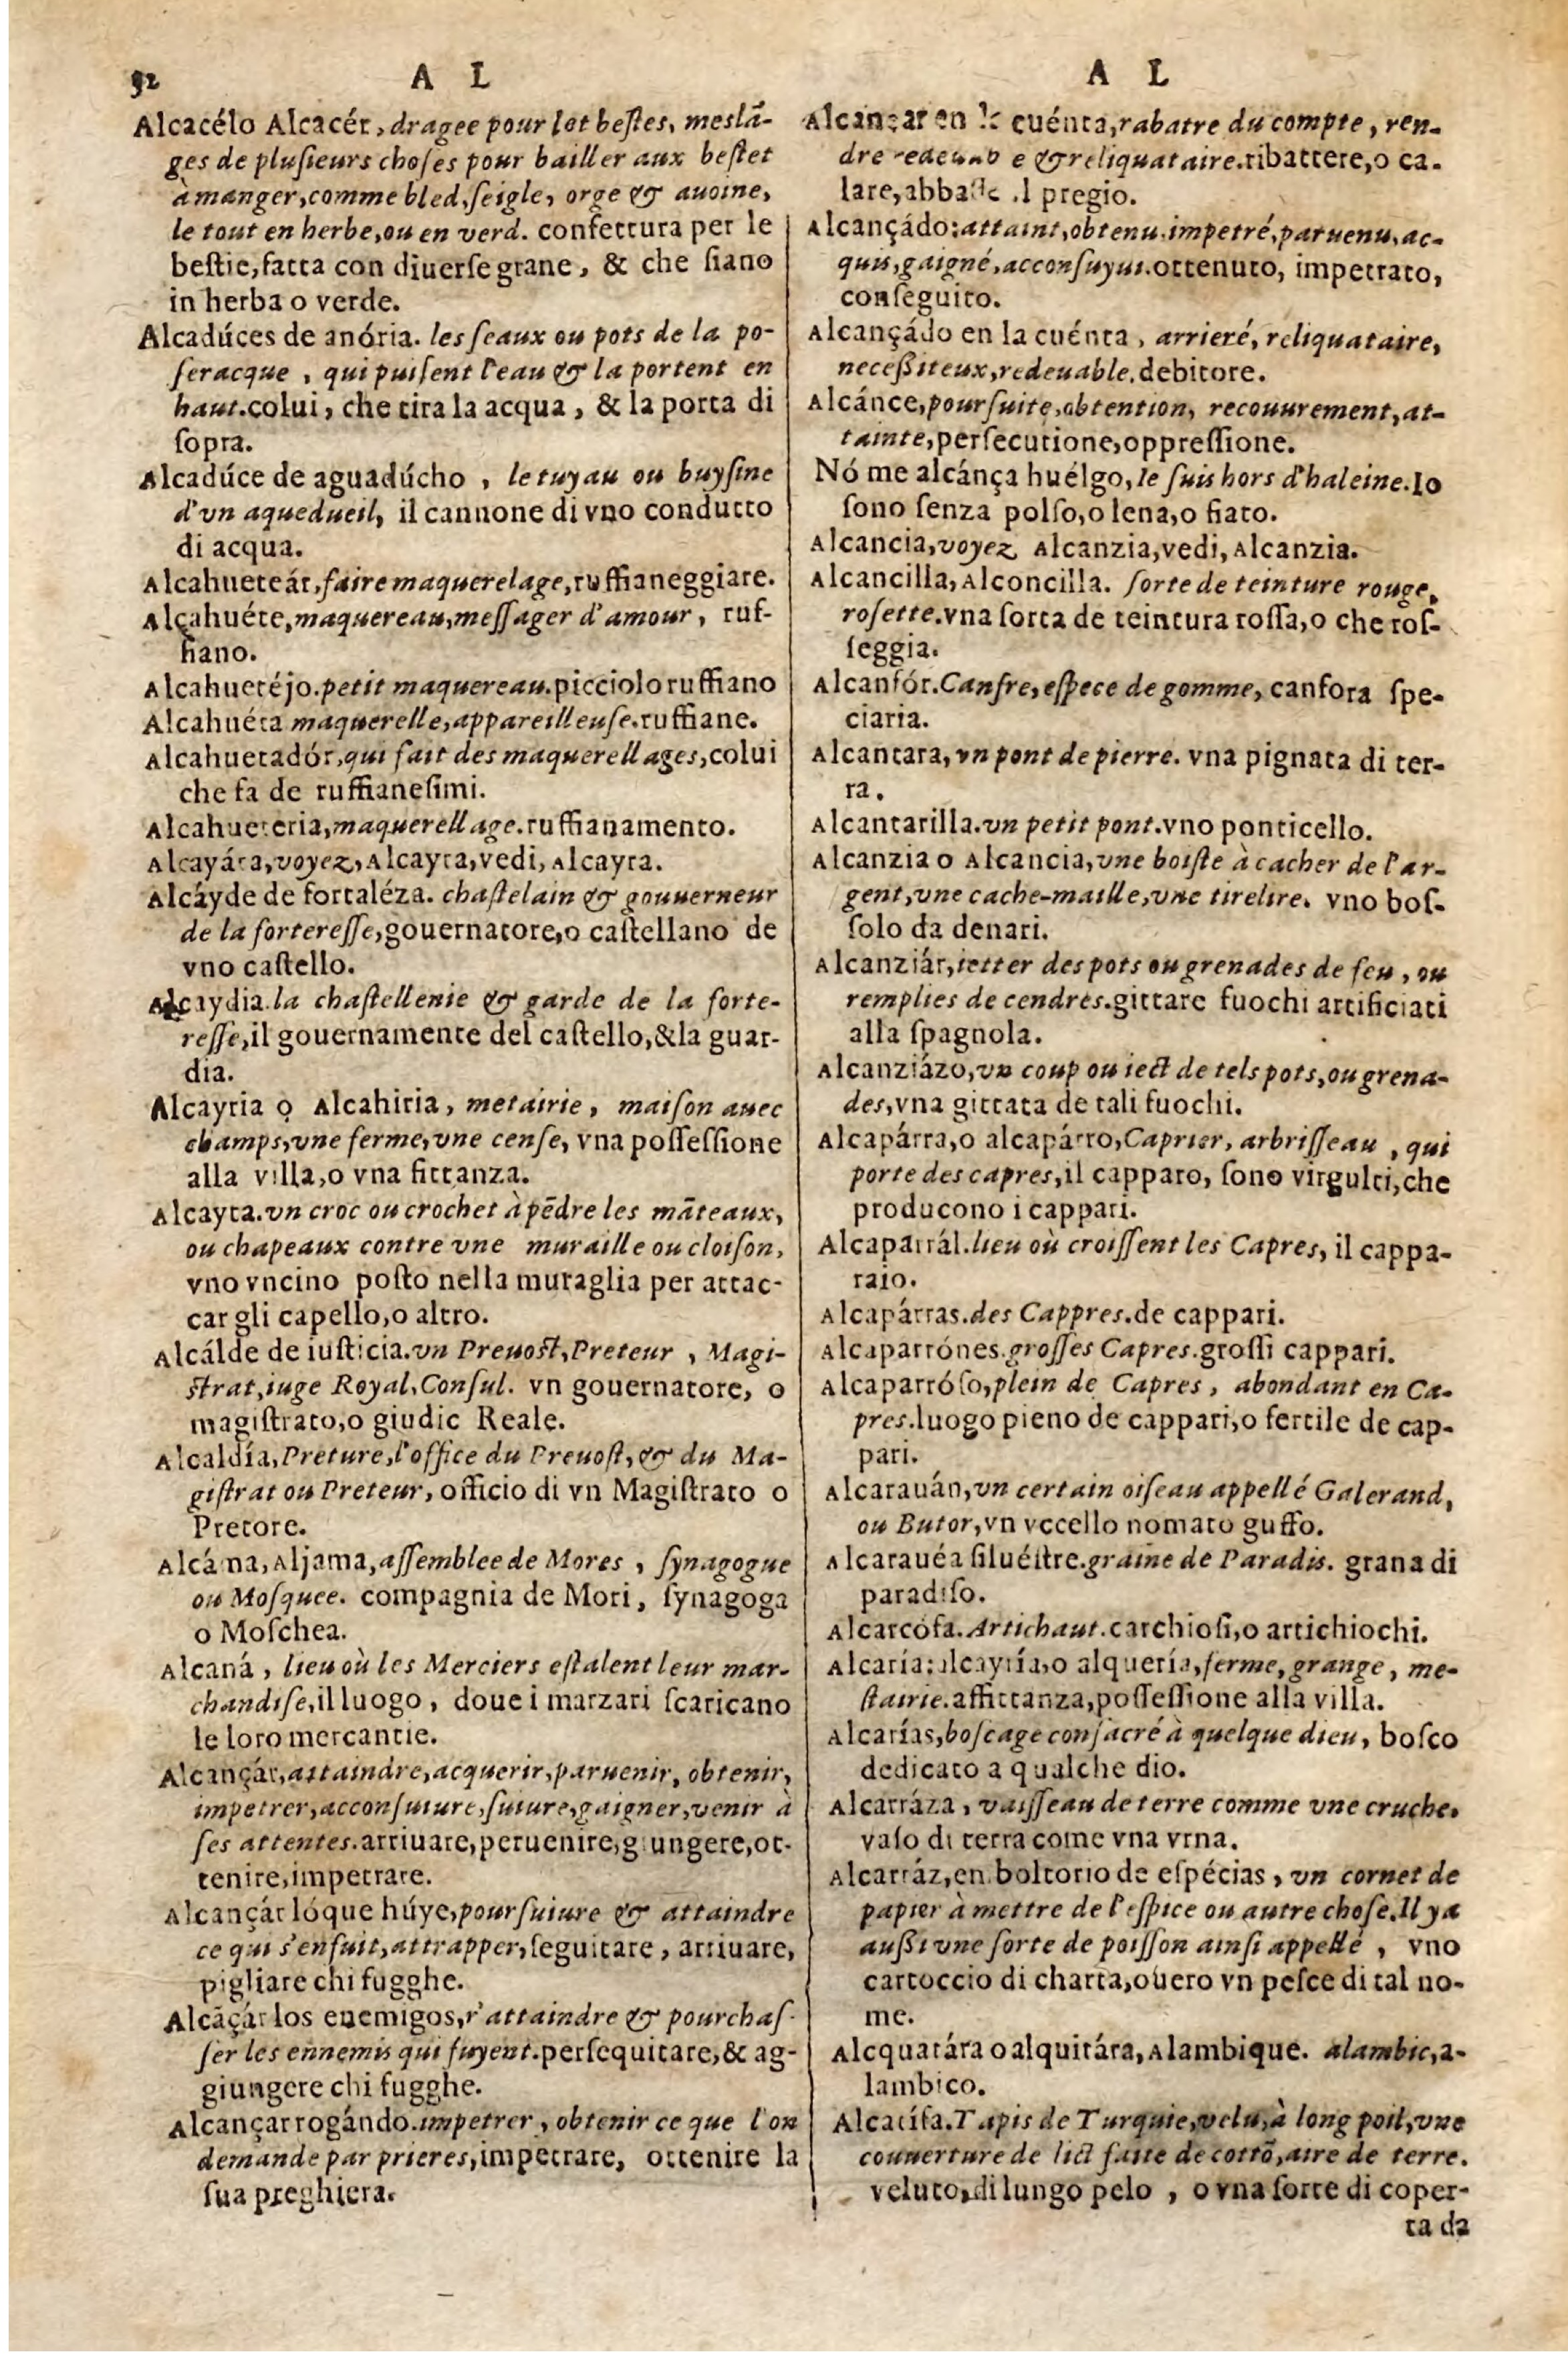 92
A L
Alcacélo Alcacér, dragee pour lot beſtes, meslã-
ges de pluſieurs choſes pour bailler aux beſtet
à manger, comme bled, ſeigle, orge & auoine,
le tout en herbe, ou en verd. confettura per le
beſtie, fatta con diuerſe grane, & che ſiano
in herba o verde.
Alcadúces de anória. les ſeaux ou pots de la po-
ſeracque, qui puiſent l'eau & la portent en
haut. colui, che tira la acqua, & la porta di
ſopra.
Alcadúce de aguadúcho, le tuyau ou buyſine
d'vn aquedueil, il cannone di vno condutto
di acqua.
Alcahueteár, faire maquerelage, ruffianeggiare.
Alcahuéte, maquereau, meſſager d'amour, ruf-
fiano.
Alcahuetéjo. petit maquereau. picciolo ruffiano
Alcahuéta maquerelle, appareilleuſe. ruffiane.
Alcahuetadór, qui fait des maquerellages, colui
che fa de ruffianeſimi.
Alcahueteria, maquerellage. ruffianamento.
Alcayáta, voyez, Alcayta, vedi, Alcayta.
Alcáyde de fortaléza. chaſtelain & gouuerneur
de la fortereſſe, gouernatore, o caſtellano de
vno caſtello.
Alcaydia. la chaſtellenie & garde de la forte-
reſſe, il gouernamente del caſtello, & la guar-
dia.
Alcayria o Alcahiria, metairie, maiſon auec
champs, vne ferme, vne cenſe, vna poſſeſſione
alla villa, o vna fittanza.
Alcayta. vn croc ou crochet à pẽdre les mãteaux,
ou chapeaux contre vne muraille ou cloiſon,
vno vncino poſto nella muraglia per attac-
car gli capello, o altro.
Alcálde de iuſticia. vn Preuoſt, Preteur, Magi-
ſtrat, iuge Royal, Conſul. vn gouernatore, o
magiſtrato, o giudic Reale.
Alcaldía, Preture, l'office du Preuoſt, & du Ma-
giſtrat ou Preteur, officio di vn Magiſtrato o
Pretore.
Alcáma, Aljama, aſſemblee de Mores, ſynagogue
ou Moſquee. compagnia de Mori, ſynagoga
o Moſchea.
Alcaná, lieu où les Merciers eſtalent leur mar-
chandiſe, il luogo, doue i marzari ſcaricano
le loro mercantie.
Alcançár, attaindre, acquerir, paruenir, obtenir,
impetrer, acconſuiure, ſuiure, gaigner, venir à
ſes attentes. arriuare, peruenire, giungere, ot-
tenire, impetrare.
Alcançár lóque húye, pourſuiure & attaindre
ce qui s'enfuit, attrapper, ſeguitare, arriuare,
pigliare chi fugghe.
Alcãçár los enemigos, r'attaindre & pourchaſ-
ſer les ennemis qui fuyent. perſequitare, & ag-
giungere chi fugghe.
Alcançar rogándo. impetrer, obtenir ce que l'on
demande par prieres, impetrare, ottenire la
ſua preghiera.
A L
Alcançar en la cuénta, rabatre du compte, ren-
dre e & reliquataire. ribattere, o ca-
lare, il pregio.
Alcançádo: attaint, obtenu, impetré, paruenu, ac-
quis, gaigné, acconſuyui. ottenuto, impetrato,
conſeguito.
Alcançádo en la cuénta, arrieré, reliquataire,
neceßiteux, redeuable. debitore.
Alcánce, pourſuite, obtention, recouurement, at-
tainte, perſecutione, oppreſſione.
Nó me alcánça huélgo, Ie ſuis hors d'haleine. Io
ſono ſenza polſo, o lena, o fiato.
Alcancia, voyez Alcanzia, vedi, Alcanzia.
Alcancilla, Alconcilla. ſorte de teinture rouge,
roſette. vna ſorta de teintura roſſa, o che roſ-
ſeggia.
Alcanfór. Canfre, eſpece de gomme, canfora ſpe-
ciaria.
Alcantara, vn pont de pierre. vna pignata di ter-
ra.
Alcantarilla. vn petit pont. vno ponticello.
Alcanzia o Alcancia, vne boiſte à cacher de l'ar-
gent, vne cache-maille, vne tirelire. vno boſ-
ſolo da denari.
Alcanziár, ietter des pots ou grenades de feu, ou
remplies de cendres. gittare fuochi artificiati
alla ſpagnola.
Alcanziázo, vn coup ou iect de tels pots, ou grena-
des, vna gittata de tali fuochi.
Alcapárra, o alcapárro, Caprier, arbriſſeau, qui
porte des capres, il capparo, ſono virgulti, che
producono i cappari.
Alcaparrál. lieu où croiſſent les Capres, il cappa-
raio.
Alcapárras. des Cappres. de cappari.
Alcaparrónes. groſſes Capres. groſſi cappari.
Alcaparróſo, plein de Capres, abondant en Ca-
pres. luogo pieno de cappari, o fertile de cap-
pari.
Alcarauán, vn certain oiſeau appellé Galerand,
ou Butor, vn vccello nomato guffo.
Alcarauéa ſiluéſtre. graine de Paradis. grana di
paradiſo.
Alcarcófa. Artichaut. carchiofi, o artichiochi.
Alcaría: alcayría, o alquería, ferme, grange, me-
ſtairie. affittanza, poſſeſſione alla villa.
Alcarías, boſcage conſacré à quelque dieu, boſco
dedicato a qualche dio.
Alcarráza, vaiſſeau de terre comme vne cruche.
vaſo di terra come vna vrna.
Alcarráz, en boltorio de eſpécias, vn cornet de
papier à mettre de l'eſpice ou autre choſe. Il y a
außi vne ſorte de poiſſon ainſi appellé, vno
cartoccio di charta, ouero vn peſce di tal no-
me.
Alcquatára o alquitára, Alambique. alambic, a-
lambico.
Alcatífa. Tapis de Turquie, velu, à long poil, vne
couuerture de lict faite de cottõ, aire de terre.
veluto, di lungo pelo, o vna ſorte di coper-
ta da